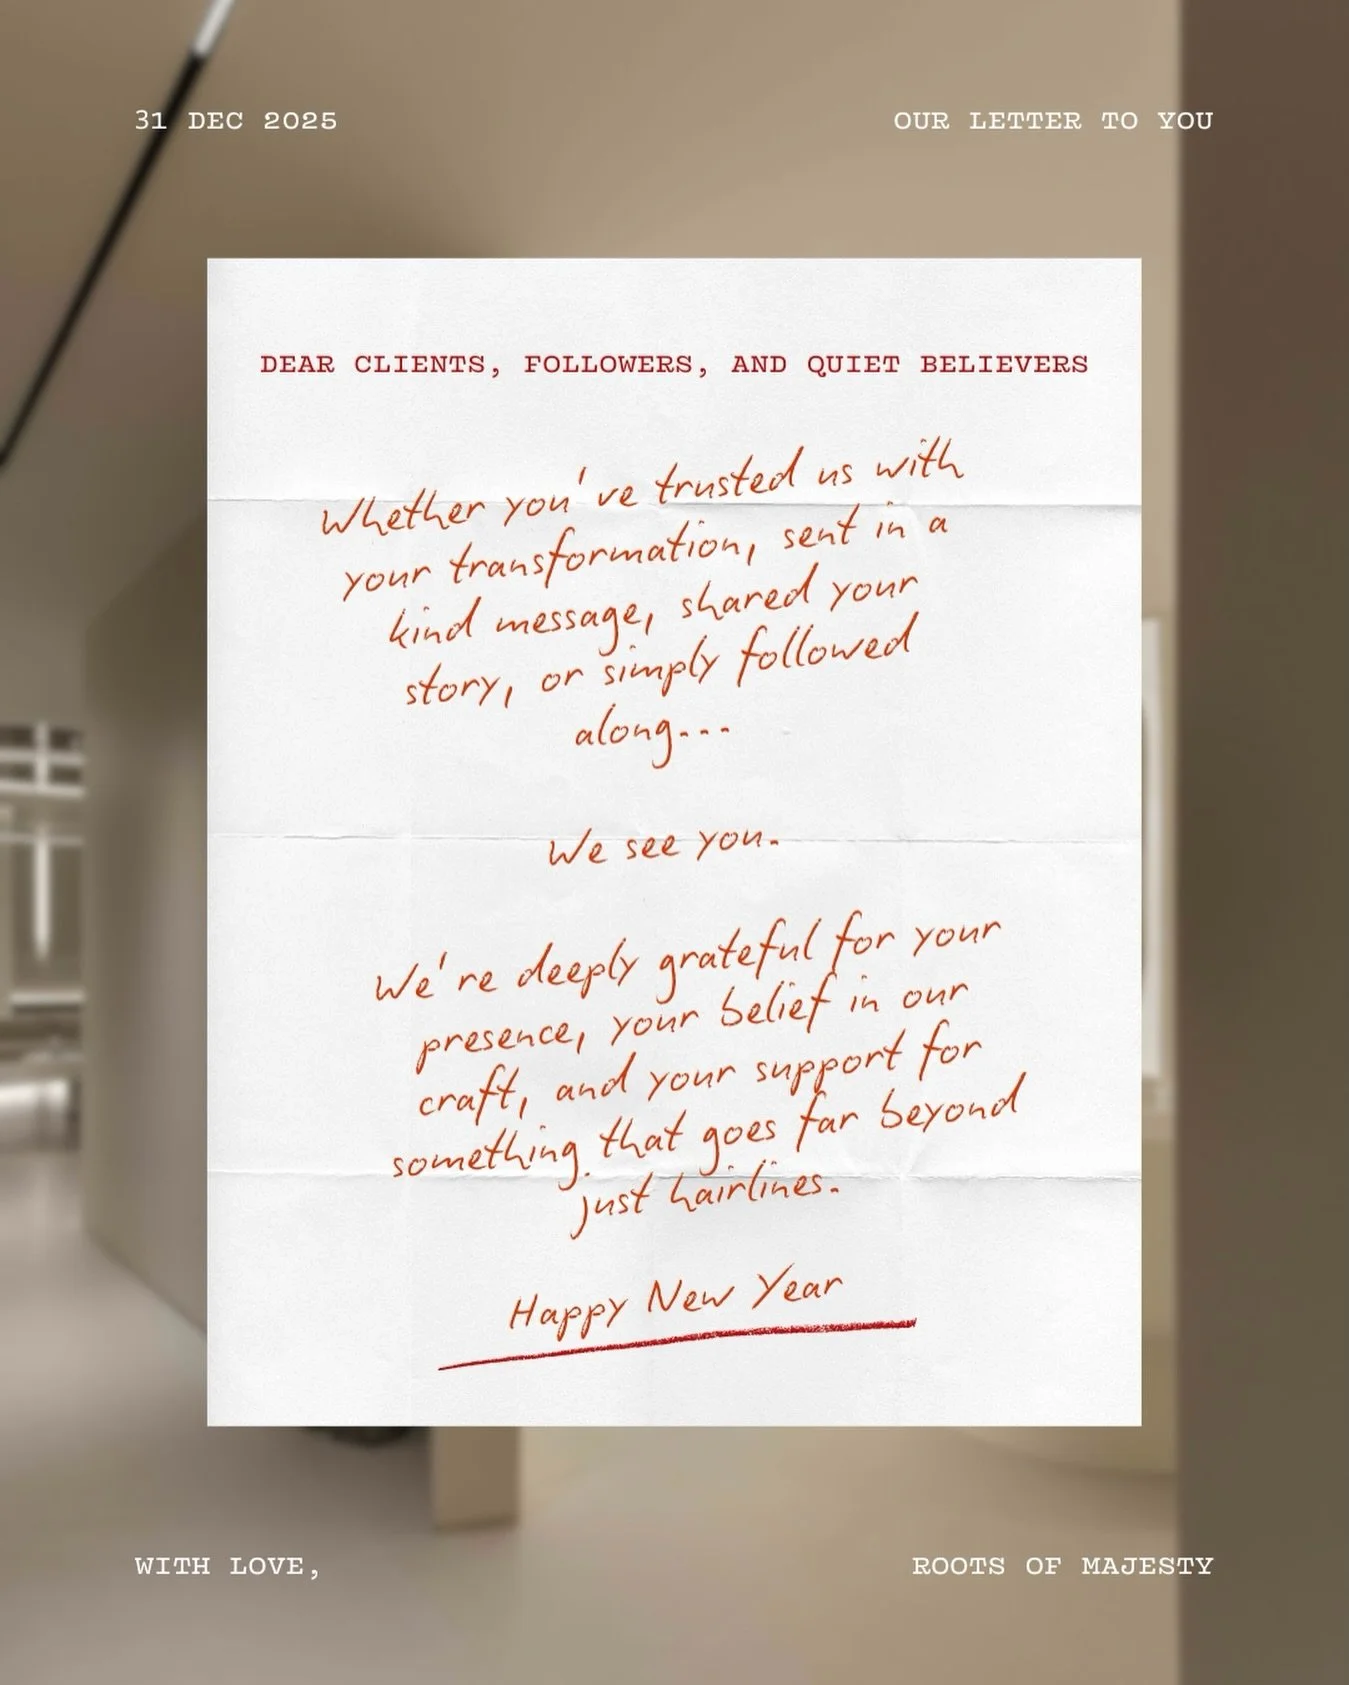 31 DEC 2025
OUR LETTER TO YOU
DEAR CLIENTS, FOLLOWERS, AND QUIET BELIEVERS
Whether you've trusted us with
your transformation, sent in a
kind message, shared your
story, or simply followed
along...
We see you.
We're deeply grateful for your
presence, your belief in our
craft, and your support for
something that goes far beyond
just hairlines.
Happy New Year
WITH LOVE,
ROOTS OF MAJESTY